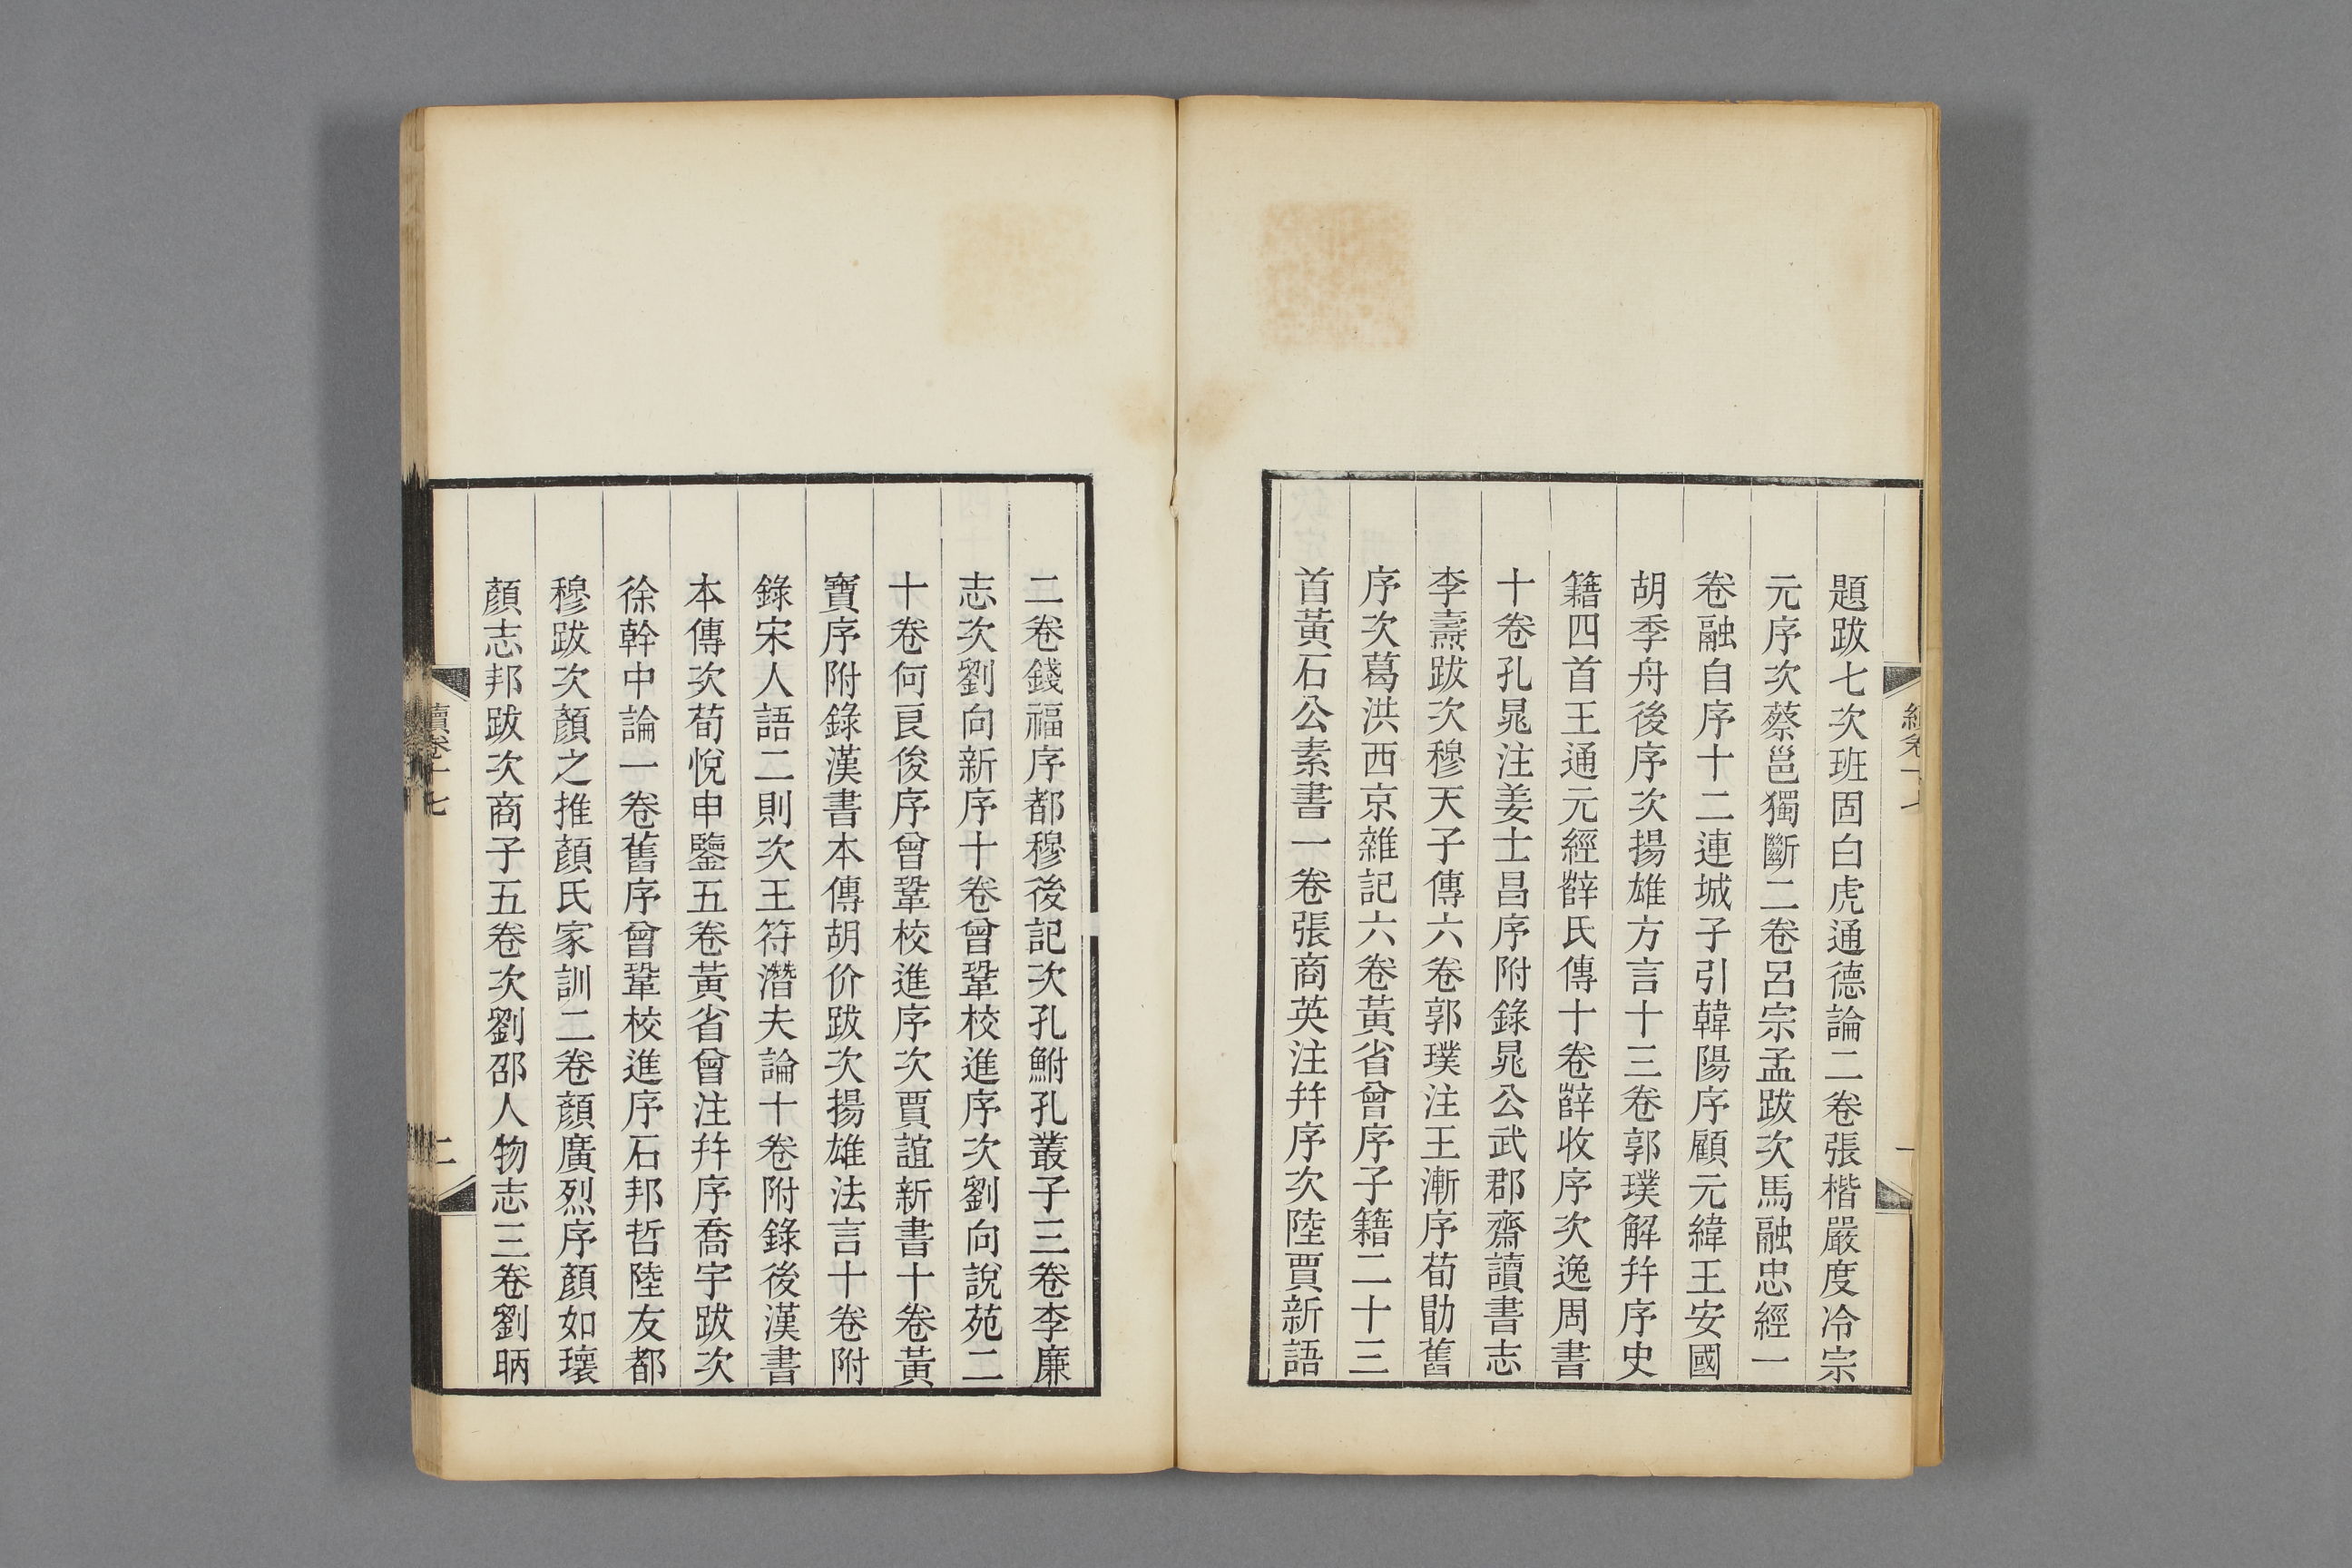 題跋七次班固白虎通德論二卷張楷嚴度冷宗
元序次蔡邕獨斷二卷呂宗孟跋次馬融忠經一
卷融自序十二連城子引韓陽序顧元緯王安國
胡季舟後序次揚雄方言十三卷郭璞解幷序史
籍四首王通元經薛氏傳十卷薛收序次逸周書
十卷孔晁注姜士昌序附錄晁公武郡齋讀書志
李燾跋次穆天子傳六卷郭璞注王漸序荀勖舊
序次葛洪西京雜記六卷黃省曾序子籍二十三
首黃石公素書一卷張商英注幷序次陸賈新語
二卷錢福序都穆後記次孔鮒孔叢子三卷李廉
志次劉向新序十卷曾鞏校進序次劉向說苑二
十卷何良俊序曾鞏校進序次賈誼新書十卷黃
寶序附錄漢書本傳胡价跋次揚雄法言十卷附
錄宋人語二則次王符潛夫論十卷附錄後漢書
本傳次荀悅申鑒五卷黃省曾注幷序喬宇跋次
徐幹中論一卷舊序曾鞏校進序石邦哲陸友都
穆跋次顏之推顏氏家訓二卷顏廣烈序顏如瓌
顏志邦跋次商子五卷次劉邵人物志三卷劉昞
續卷十七
二